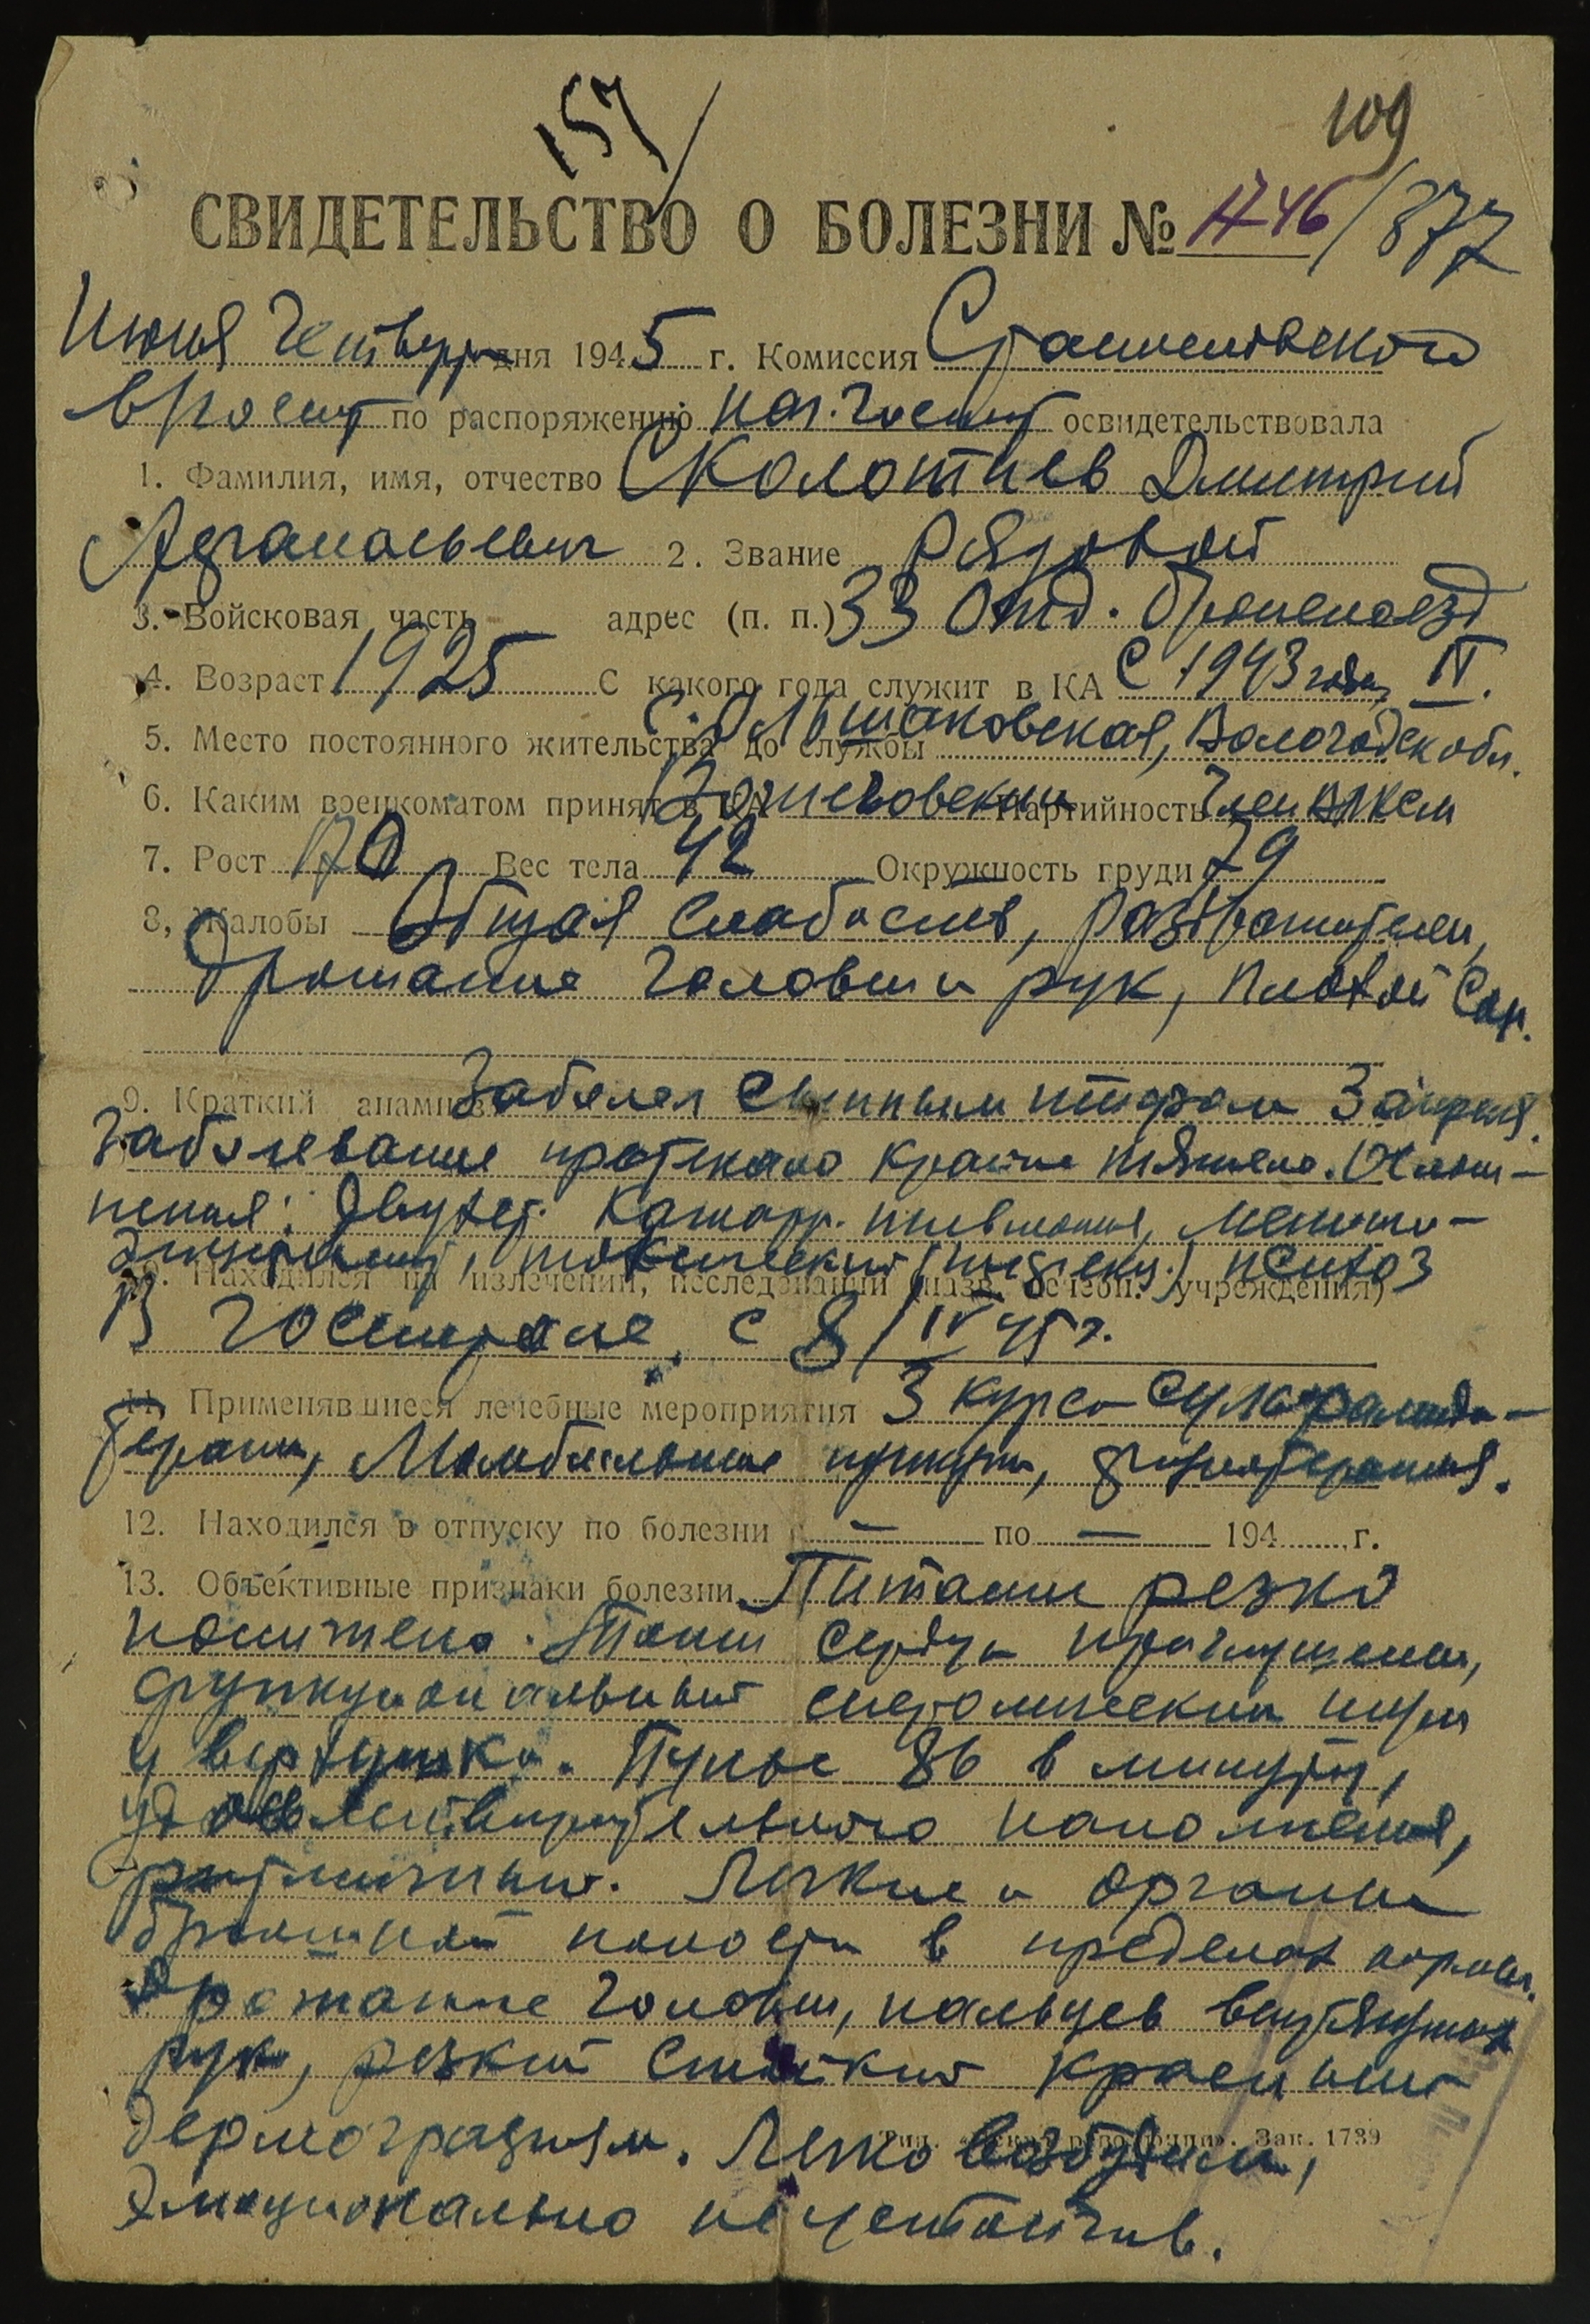 157/
109
СВИДЕТЕЛЬСТВО О БОЛЕЗНИ № 1746/877
Июня Четверт дня 1945 г. Комиссия
по распоряжению нач. госпит освидетельствовала
1. Фамилия, имя, отчество Сколотнев Дмитрий
Афанасьевич 2. Звание Рядовой
3. Войсковая часть адрес (п. п.) 33 Отд. бронепоезд
4. Возраст 1925 С какого года служит в КА С 1943 года IV.
5. Место постоянного жительства до службы Вологодск обл.
6. Каким военкоматом принят в КА Партийность Член ВЛКСМ
7. Рост 170 Вес тела 42 Окружность груди 79
8, Жалобы Общая слабость, раздражителен,
Дрожание головы и рук, плохой сон.
9. Краткий анамнез Заболел сыпным тифом 3 апреля.
Заболевание протекало крайне тяжело. Ослож-
нения: Двухст. Катарр. пневмония, менинго-
энцефалит, токсический (инфекц.) психоз
10. Находился на излечении, исследовании (назв. лечебн. учреждения)
В госпитале с 8/IV 45 г.
11. Применявшиеся лечебные мероприятия 3 курса сульфамидо-
терапии, Люмбальные пункции, физиотерапия.
12. Находился в отпуску по болезни с — по — 194 г.
13. Объективные признаки болезни Питание резко
понижено. Тоны сердца приглушены,
функциональный систолический шум
у верхушки. Пульс 86 в минуту,
удовлетворительного наполнения,
ритмичный. Легкие и органы
брюшной полости в пределах нормы.
Дрожание головы, пальцев вытянутых
рук, резкий стойкий красный
дермографизм. Легко возбудим,
Эмоционально неустойчив.
Зак. 1739